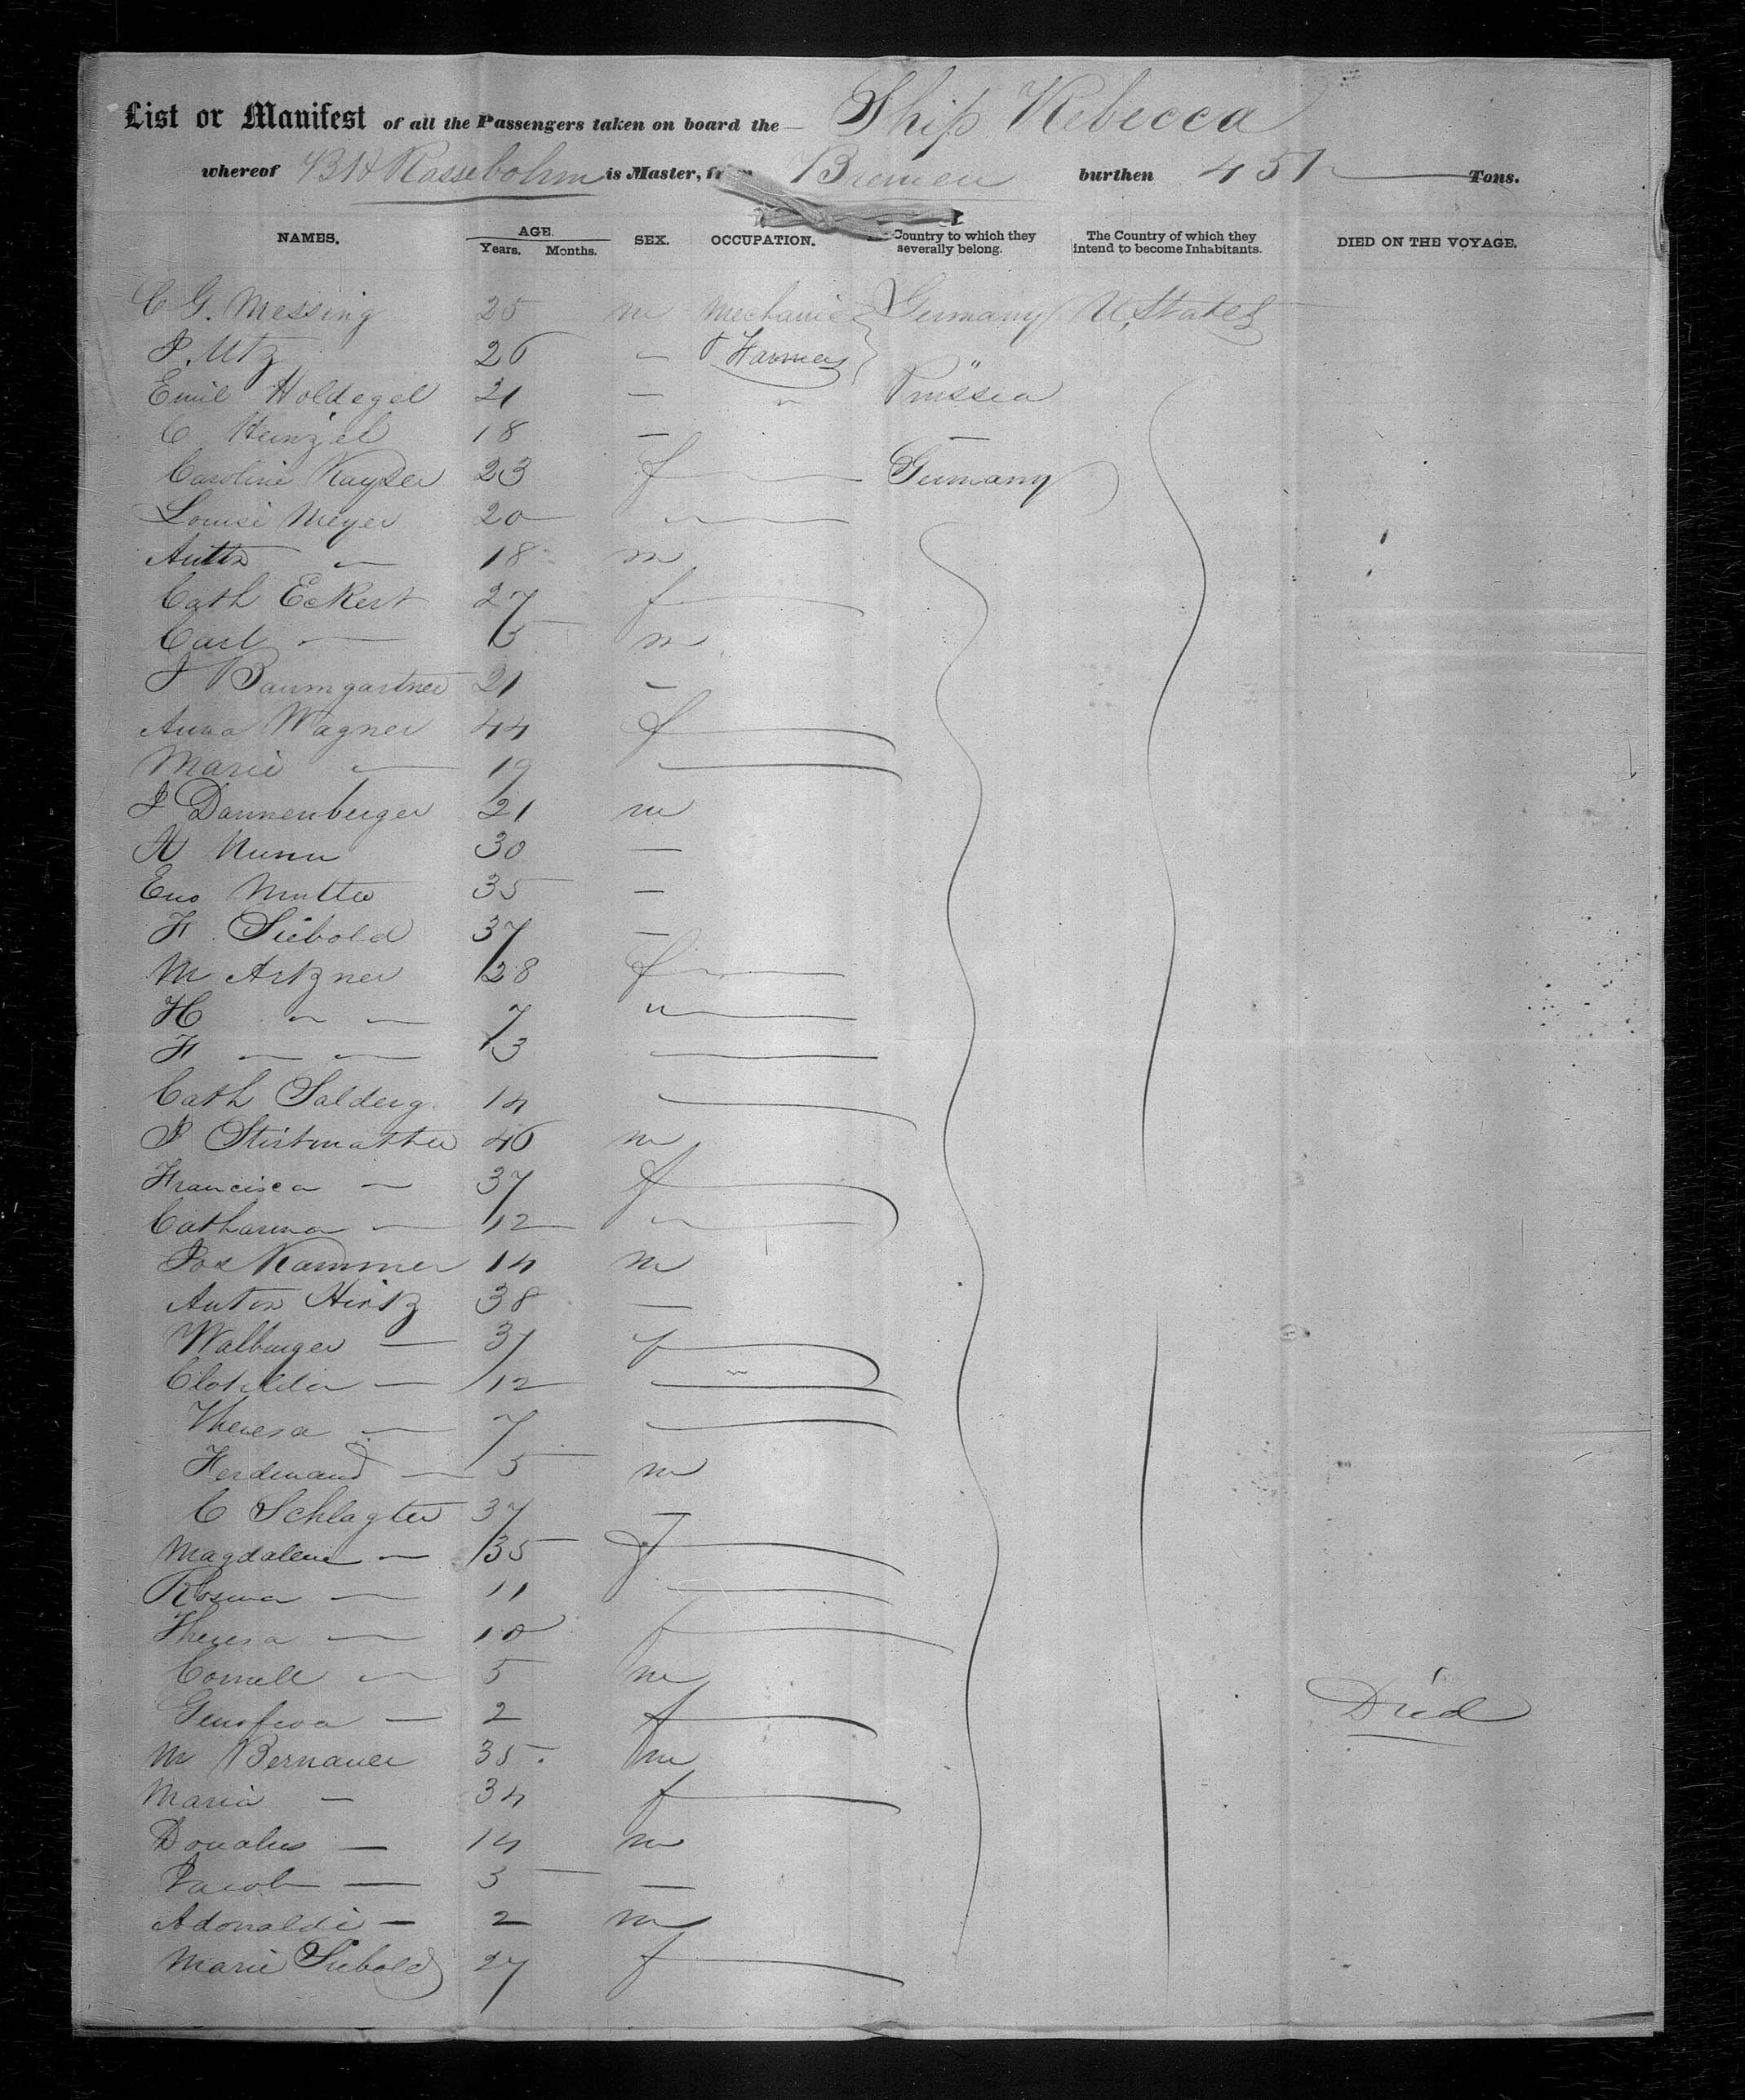 List or Manifest of all the Passengers taken on board the Ship Rebecca
whereof B H Rassebohm is Master, from Bremen burthen 451 Tons.
NAMES. AGE. Years. Months. SEX. OCCUPATION. Country to which they severally belong. The Country of which they intend to become Inhabitants. DIED ON THE VOYAGE.
C G. Messing 25 m Mechanic Germany U. States
J. Utz 26 — & Farmers "
Emil Holdegel 21 — " Prussia
C Heinzel 18 — —
Caroline Kayser 23 f — Germany
Louise Meyer 20 —
Anton — 18 m
Cath Eckert 27 f
Carl — 5 m
J Baumgartner 21 —
Anna Wagner 44 f
Marie — 19 —
J Dannenberger 21 m
A Nunn 30 —
Mutter 35 —
F. Siebold 37 —
M Artzner 28 f
H — — 7 "
F — — 3 —
Cath Salderg. 14 —
J Stirtmatter 46 m
Francisca — 37 f
Catharina — 12 "
Jos Kammer 14 m
Anton Hirtz 38 —
Walburger — 37 f
Clotilda — 12 —
Theresa — 7 —
Ferdinand — 5 m
C Schlagter 37 —
Magdalene — 35 f
Rosina — 11 —
Theresa — 10 f
Cornell — 5 m
Genofeva — 2 f Died
M Bernauer 35. m
Maria — 34 f
Donatus — 14 m
Jacob — 3 —
Adonaldi — 2 m
Marie Siebold 27 f